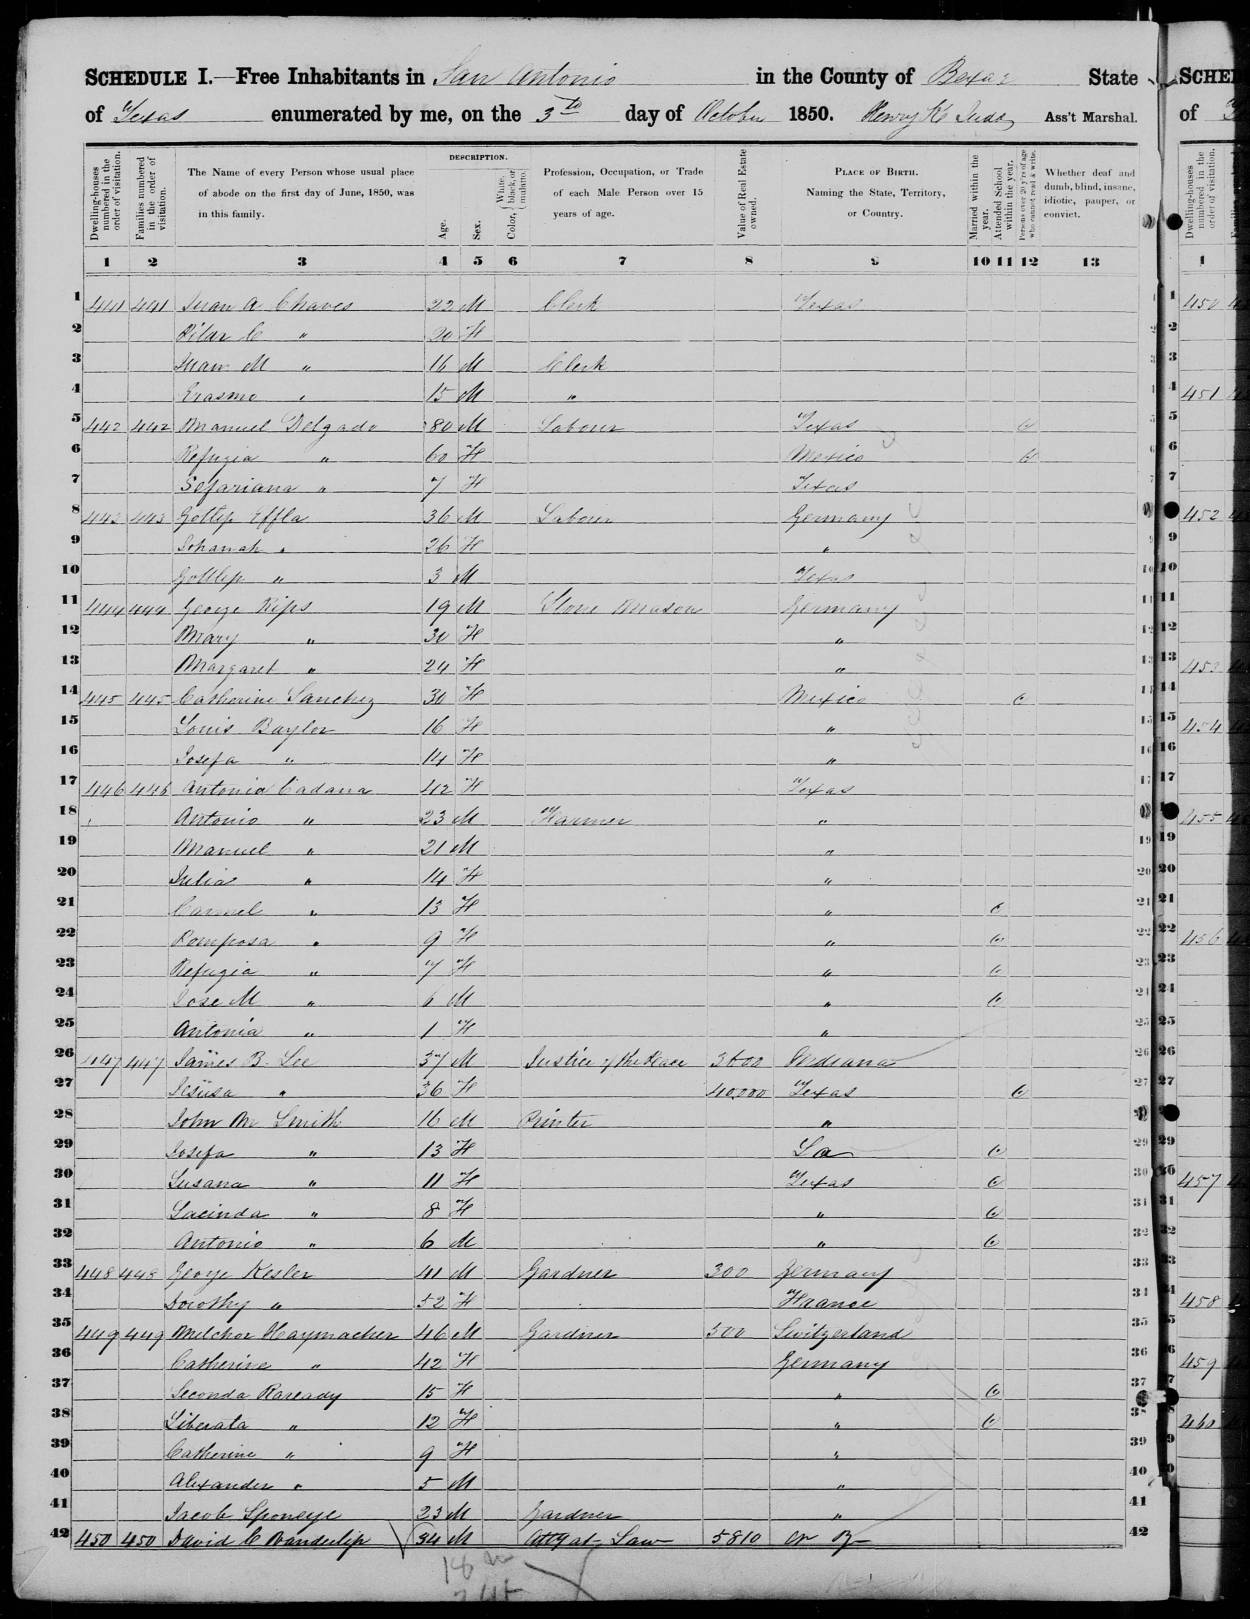 SCHEDULE I.—Free Inhabitants in San Antonio in the County of Bexar State
of Texas enumerated by me, on the 3th day of October 1850. Henry K Judd Ass't Marshal.
Dwelling-houses numbered in the order of visitation.
Families numbered in the order of visitation.
The Name of every Person whose usual place of abode on the first day of June, 1850, was in this family.
DESCRIPTION.
Age.
Sex.
Color, White, black, or mulatto.
Profession, Occupation, or Trade of each Male Person over 15 years of age.
Value of Real Estate owned.
PLACE OF BIRTH. Naming the State, Territory, or Country.
Married within the year.
Attended School within the year.
Persons over 20 y'rs of age who cannot read & write.
Whether deaf and dumb, blind, insane, idiotic, pauper, or convict.
1 2 3 4 5 6 7 8 9 10 11 12 13
1 441 441 Juan A Chaves 22 M Clerk Texas
2 Pilar C " 20 F
3 Juan M " 16 M Clerk
4 Erasmo " 15 M "
5 442 442 Manuel Delgado 80 M Labour Texas
6 Refugia " 60 F Mexico
7 Sefariana " 7 F Texas
8 443 443 Gotlip Effla 36 M Labour Germany
9 Johanah " 26 F "
10 Gottlip " 3 M Texas
11 444 444 George Kips 19 M Stone Mason Germany
12 Mary " 30 F "
13 Margaret " 24 F "
14 445 445 Catherine Sanchez 30 F Mexico
15 Louis Baylor 16 F "
16 Josefa " 14 F "
17 446 446 Antonia Cadana 42 F Texas
18 Antonio " 23 M Farmer "
19 Manuel " 21 M "
20 Julia " 14 F "
21 Carmel " 13 F "
22 Romposa " 9 F "
23 Refugia " 7 F "
24 Jose M " 6 M "
25 Antonia " 1 F "
26 447 447 James B. Lee 37 M Justice of the Peace 3600 Indiana
27 Jesusa " 36 F 40,000 Texas
28 John M Smith 16 M Printer "
29 Josefa " 13 F La
30 Susana " 11 F Texas
31 Lucinda " 8 F "
32 Antonio " 6 M "
33 448 448 George Kesler 41 M Gardner 300 Germany
34 Dorothy " 52 F France
35 449 449 Melchor Haymacher 46 M Gardner 500 Switzerland
36 Catherine " 42 F Germany
37 Seconda Raready 15 F "
38 Liberata " 12 F "
39 Catherine " 9 F "
40 Alexander " 5 M "
41 Jacob Sponeye 23 M Gardner "
42 450 450 David C Vanderlip 34 M Atty at Law 5810 N Y
18 m
24 f